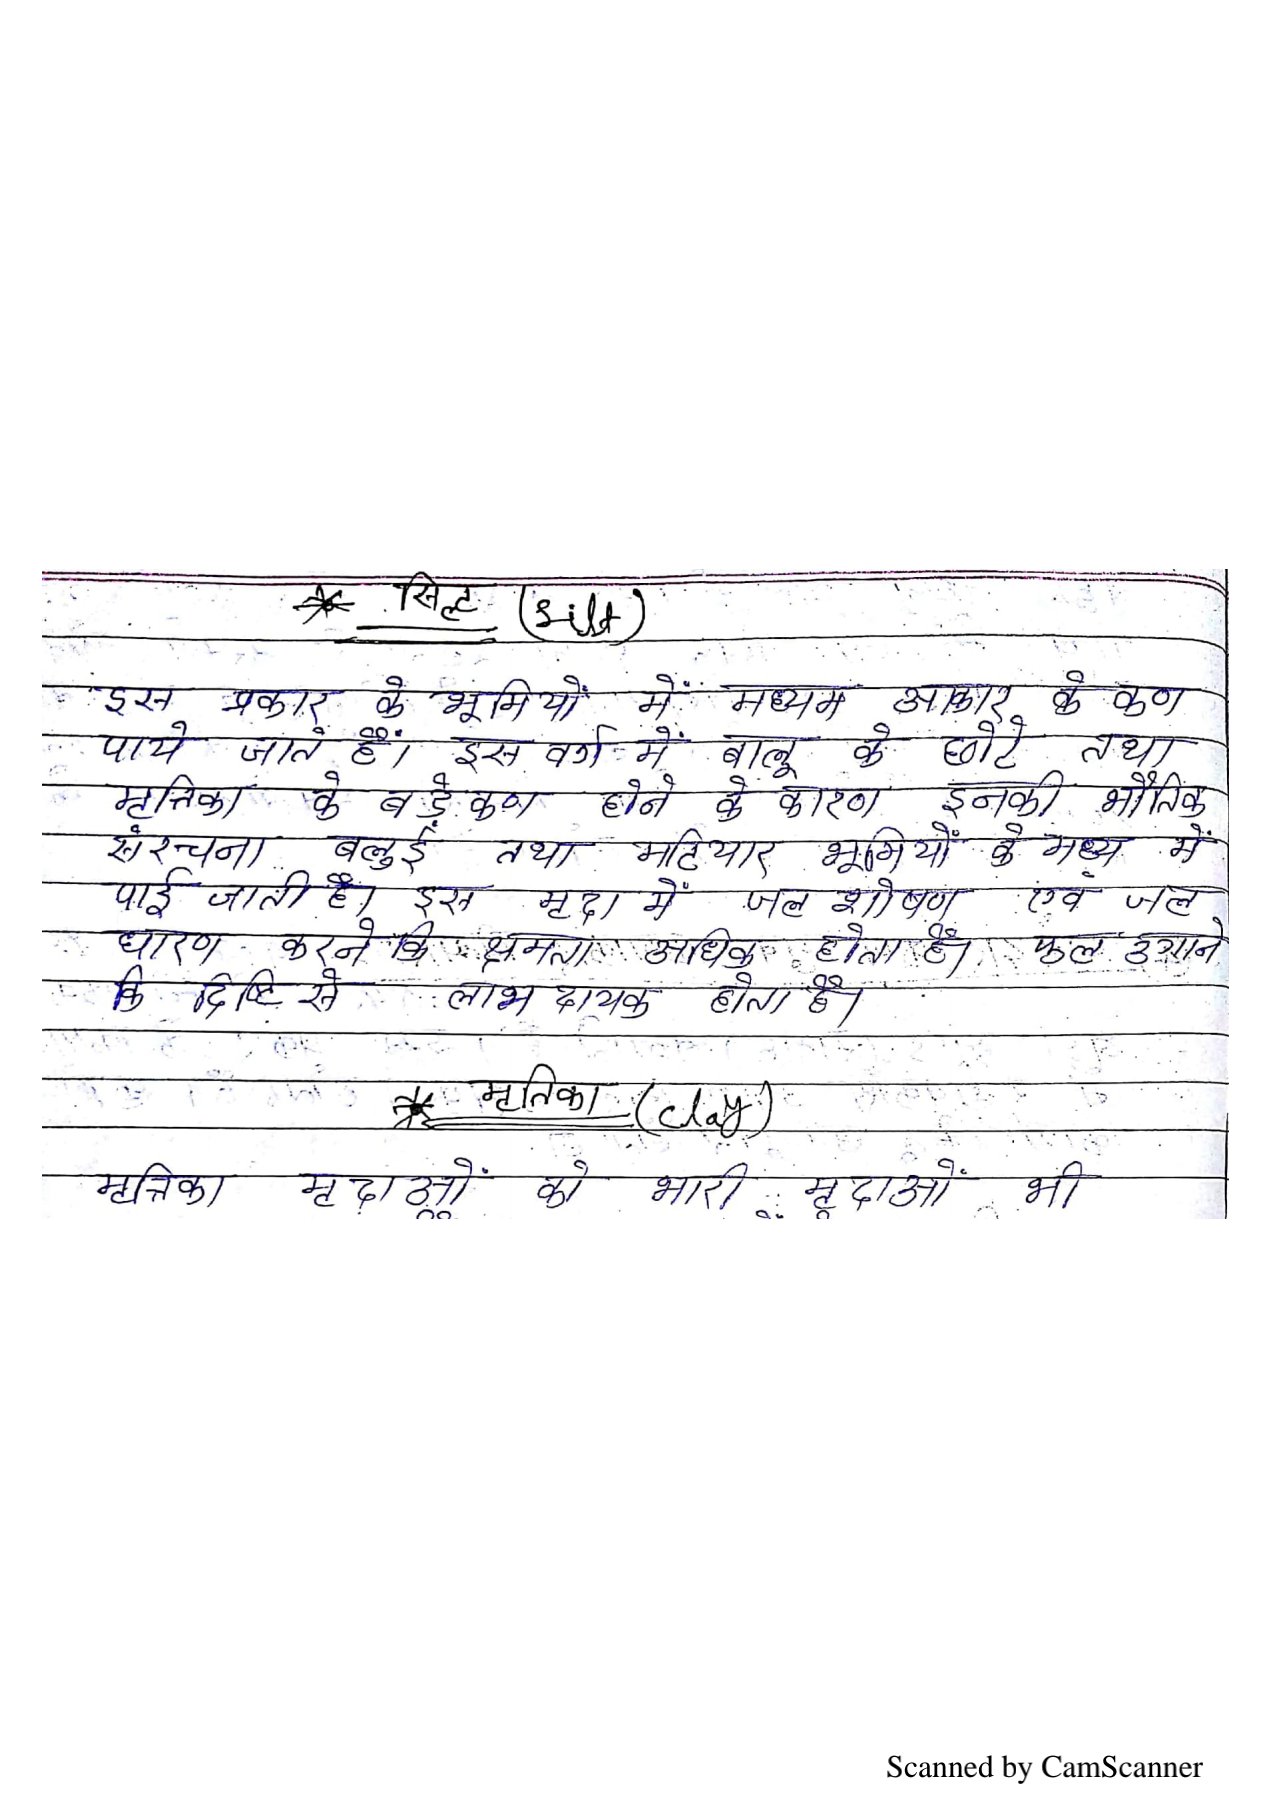 * सिल्ट (silt)
इस प्रकार के भूमियों में मध्यम आकार के कण
पाये जाते हैं। इस वर्ग में बालू के छोटे तथा
मृत्तिका के बड़े कण होने के कारण इनकी भौतिक
संरचना बलुई तथा मटियार भूमियों के मध्य में
पाई जाती है। इस मृदा में जल शोषण एवं जल
धारण करने कि क्षमता अधिक होता है। फल उगाने
कि दिष्टि से लाभ दायक होता है।
* मृतिका (clay)
मृत्तिका मृदाओं को भारी मृदाओं भी
Scanned by CamScanner